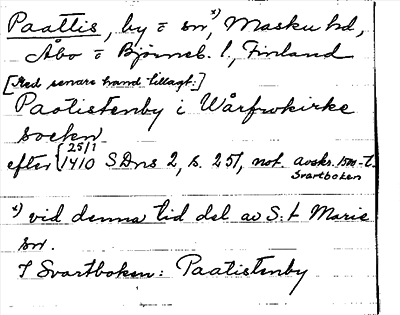 Paattis, by = sn, x) Masku hd,
Åbo = Björneb. l., Finland
[Med senare hand tillagt:]
Paatistenby i Wårfrwkirke
socken
efter { 25/1 1410 SDns 2, s. 251, not. avskr. 15m-t. Svartboken
x) vid denna tid del av S:t Marie
sn.
I Svartboken: Paatistenby